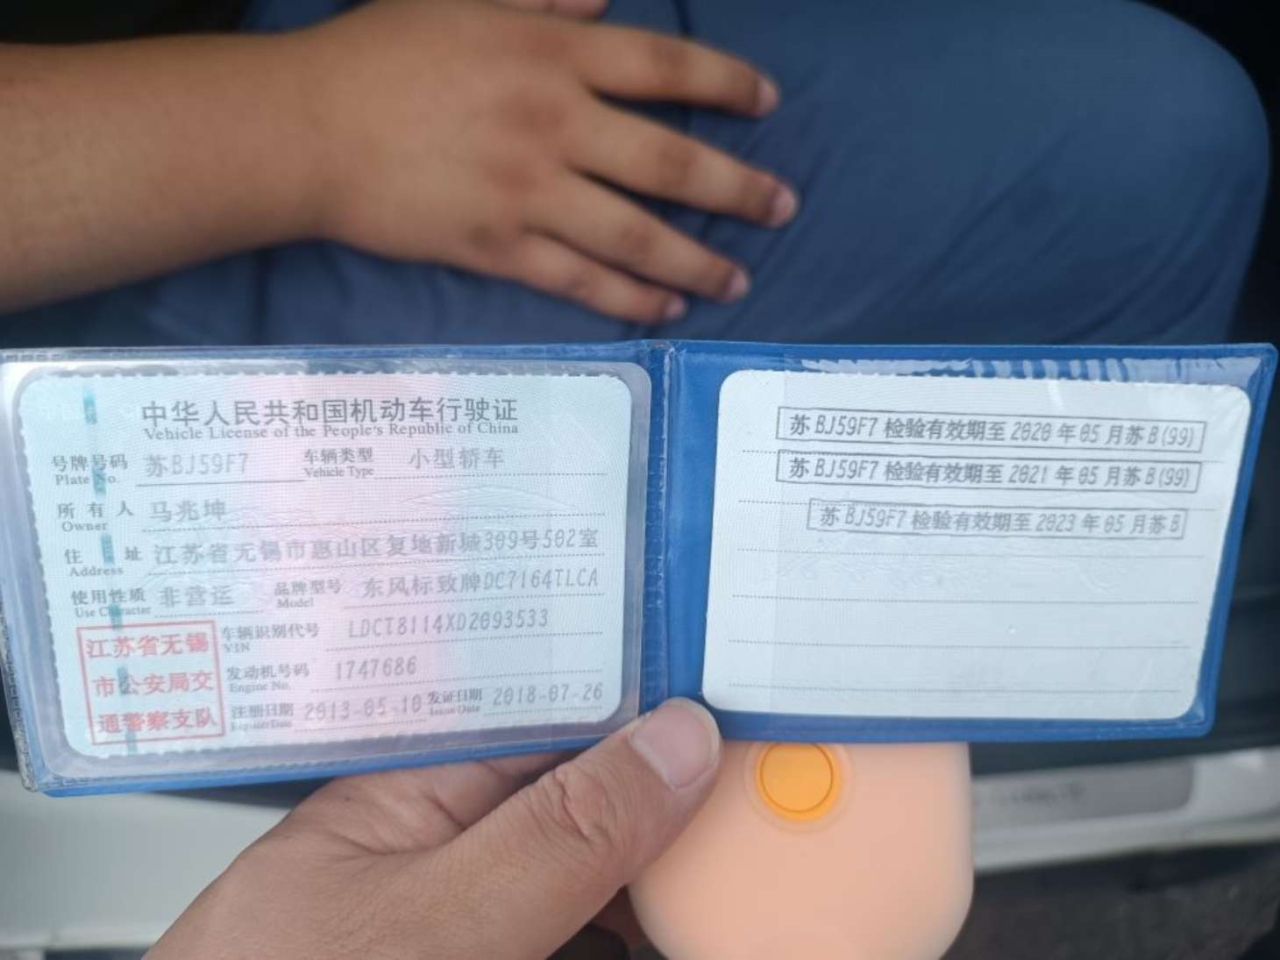 中华人民共和国机动车行驶证
Vehicle License of the People's Republic of China
号牌号码 苏BJ59F7 车辆类型 小型轿车
Plate No. Vehicle Type
所有人 马兆坤
Owner
住址 江苏省无锡市惠山区复地新城309号502室
Address
使用性质 非营运 品牌型号 东风标致牌DC7164TLCA
Use Character Model
江苏省无锡
市公安局交
通警察支队
车辆识别代号 LDCT8114XD2093533
VIN
发动机号码 1747686
Engine No.
注册日期 2013-05-10 发证日期 2018-07-26
Register Date Issue Date
苏BJ59F7 检验有效期至 2020 年 05 月苏 B(99)
苏BJ59F7 检验有效期至 2021 年 05 月苏 B(99)
苏 BJ59F7 检验有效期至 2023 年 05 月苏 B